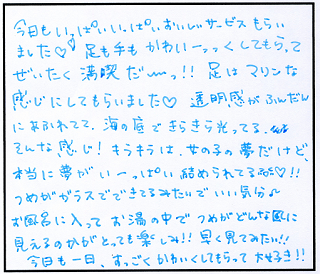 今日もいっぱいいっぱいおいしいサービスもらい
ました♡ 足も手もかわいーっっくしてもらって
ぜいたく満喫だーっ!! 足はマリンな
感じにしてもらいました♡ 透明感がふんだん
にあふれてて、海の底できらきら光ってる、
そんな感じ! キラキラは、女の子の夢だけど、
本当に夢がいーっぱい詰められてる♡!!
つめがガラスでできてるみたいでいい気分♪
お風呂に入ってお湯の中でつめがどんな風に
見えるのかがとっても楽しみ!! 早く見てみたい!!
今日も一日、すっごくかわいくしてもらって大好き!!